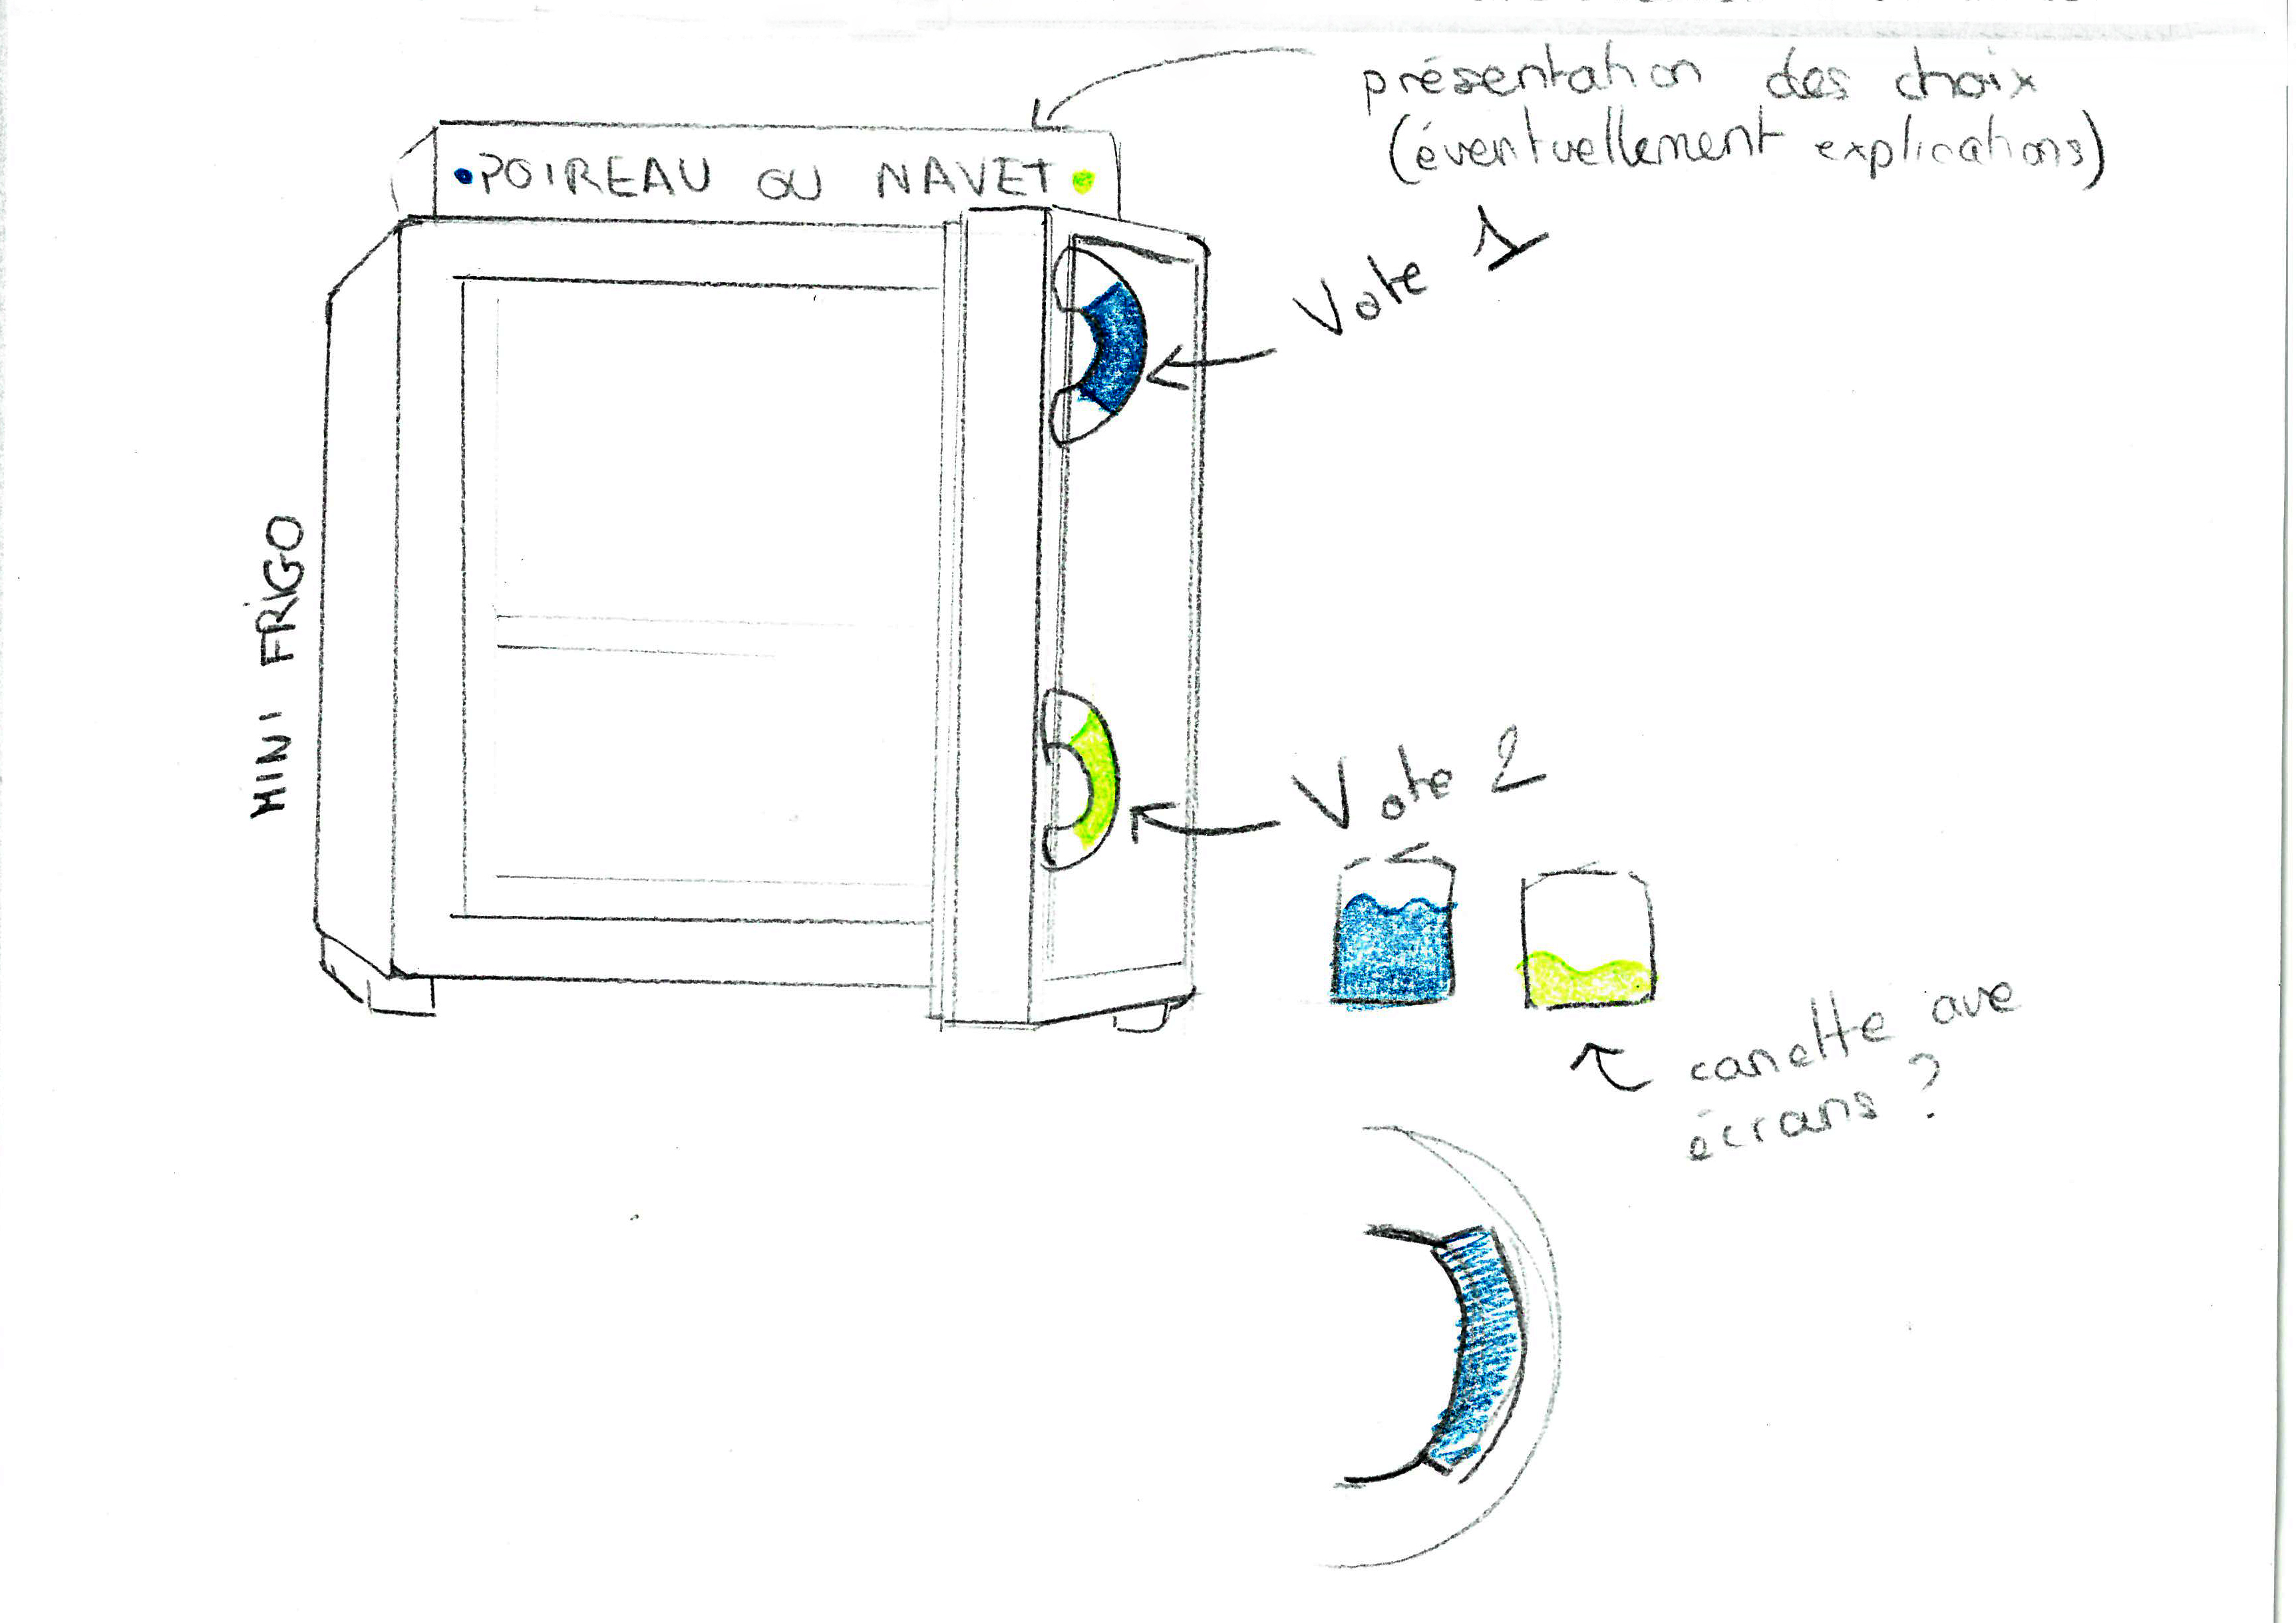 présentation des choix
(éventuellement explications)
•POIREAU OU NAVET•
Vote 1
MINI FRIGO
Vote 2
canette ave
écrans ?